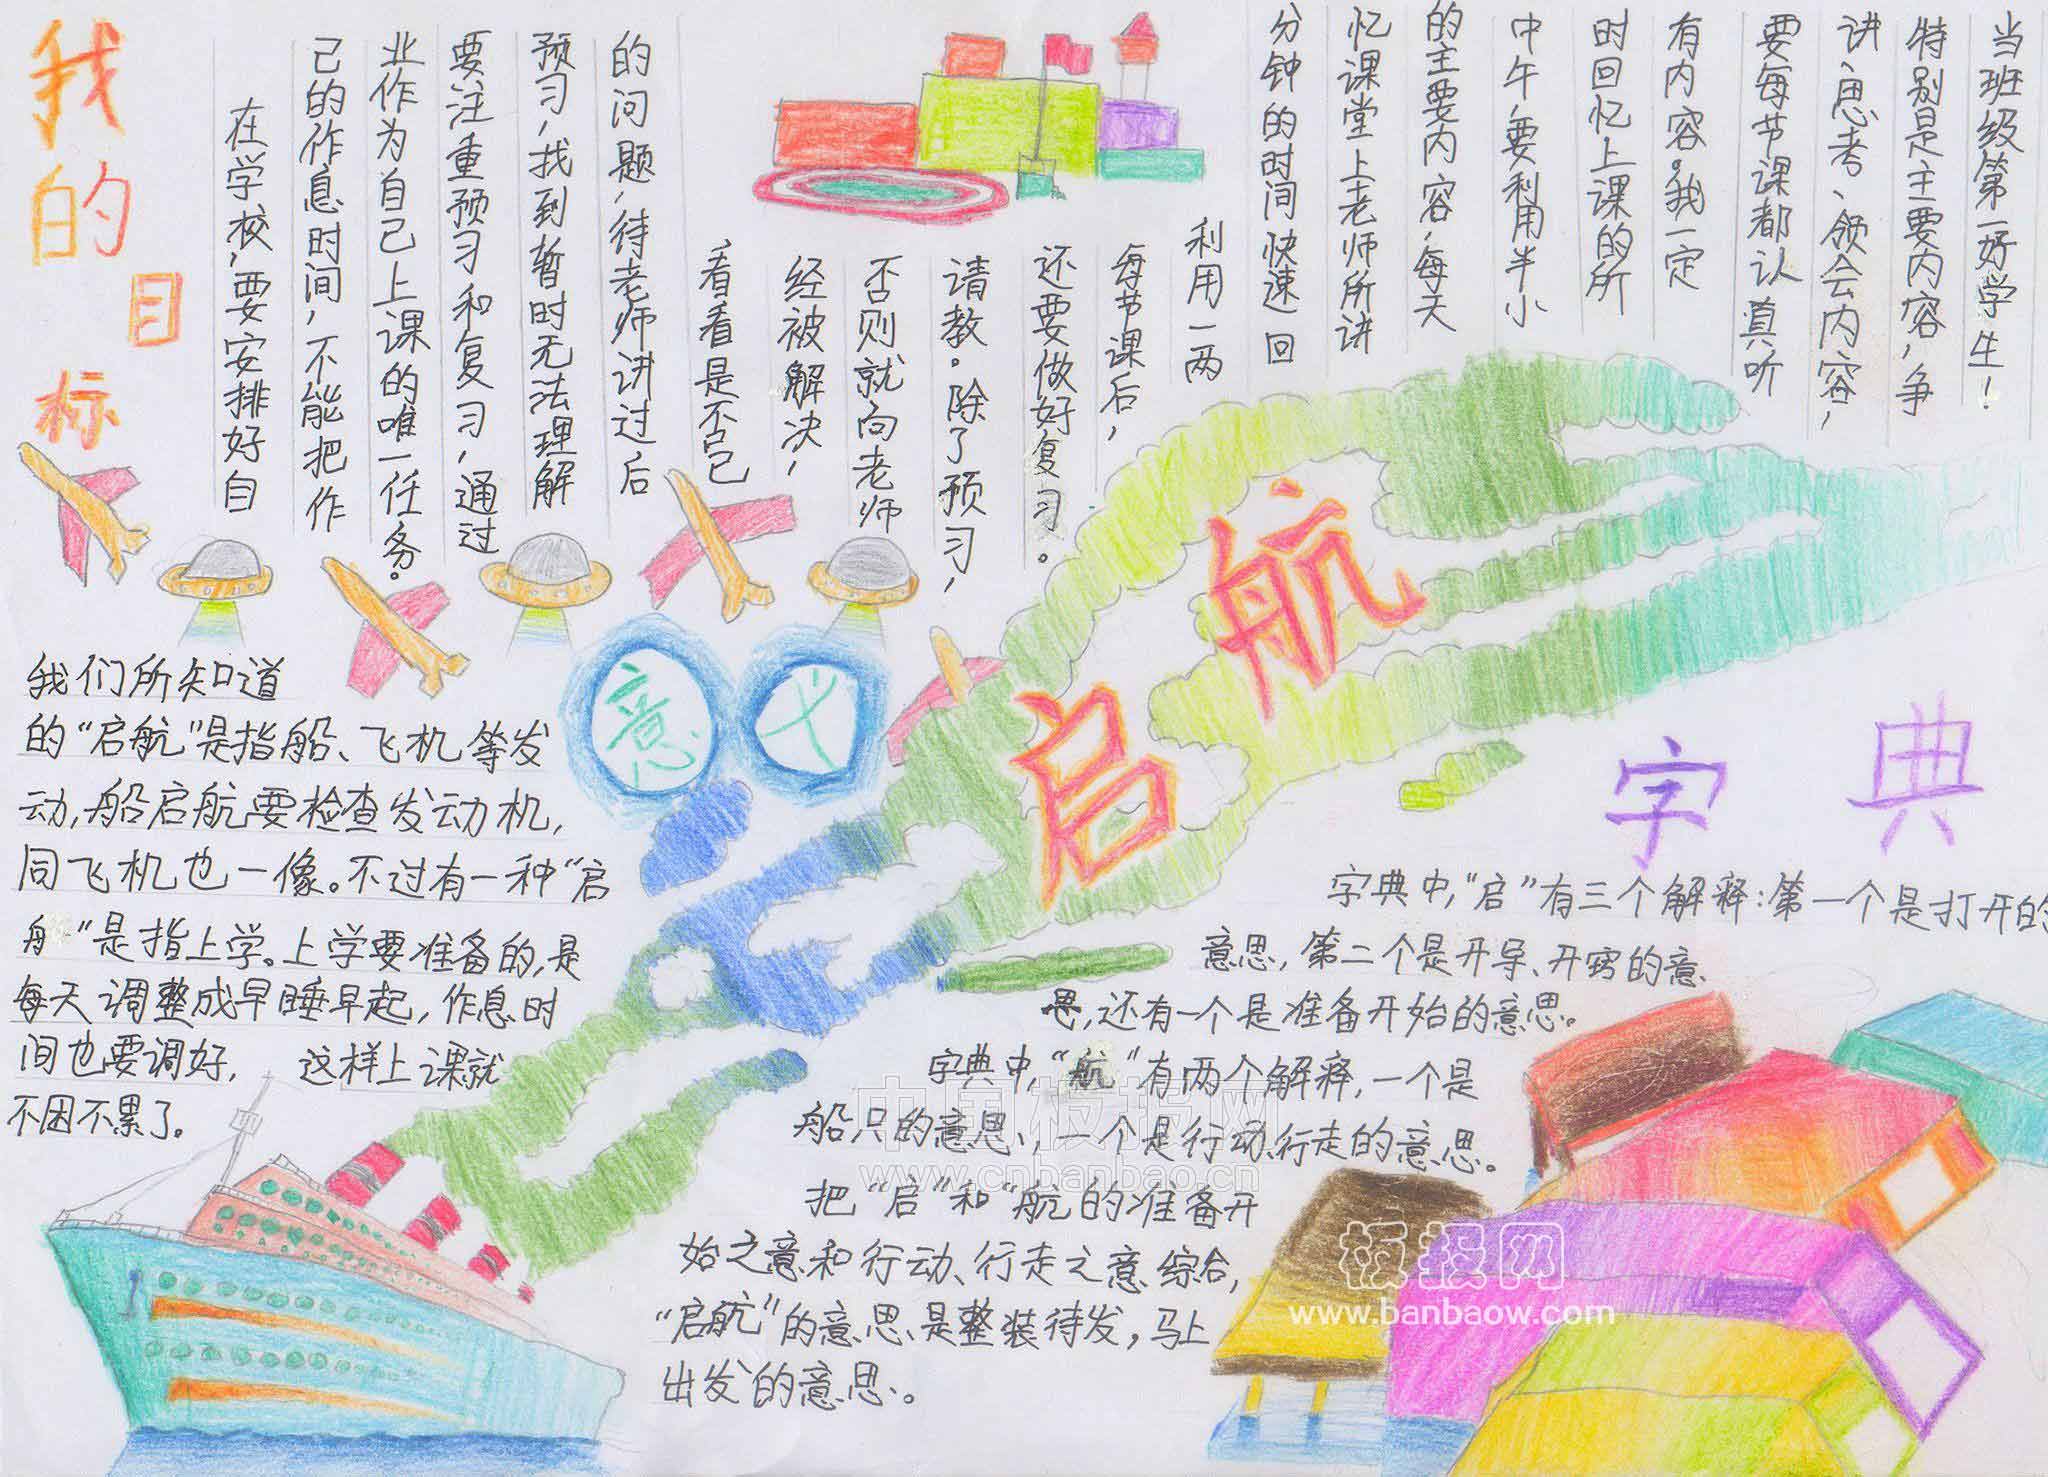 我的目标
在学校,要安排好自
己的作息时间,不能把作
业作为自己上课的唯一任务。
要注重预习和复习,通过
预习,找到暂时无法理解
的问题,待老师讲过后
看看是不已
经被解决,
否则就向老师
请教。除了预习,
还要做好复习。
每节课后,
利用一两
分钟的时间快速回
忆课堂上老师所讲
的主要内容,每天
中午,要利用半小
时回忆上课的所
有内容。我一定
要每节课都认真听
讲、思考、领会内容,
特别是主要内容,争
当班级第一好学生!
启航
意义
我们所知道
的“启航”是指船、飞机等发
动,船启航要检查发动机,
同飞机也一像。不过有一种“启
航”是指上学。上学要准备的,是
每天调整成早睡早起,作息时
间也要调好, 这样上课就
不困不累了。
字典
字典中,“启”有三个解释:第一个是打开的
意思,第二个是开导、开窍的意
思,还有一个是准备开始的意思。
字典中,“航”有两个解释,一个是
船只的意思,一个是行动、行走的意思。
把“启”和“航的准备开
始之意和行动、行走之意综合,
“启航”的意思是整装待发,马上
出发的意思。
中国板报网
www.cnbanbao.cn
板报网
www.banbaow.com